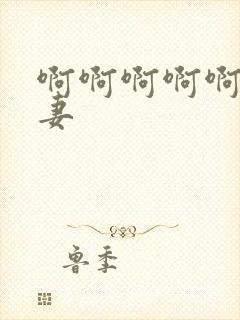 啊啊啊啊啊
妻
鲁季